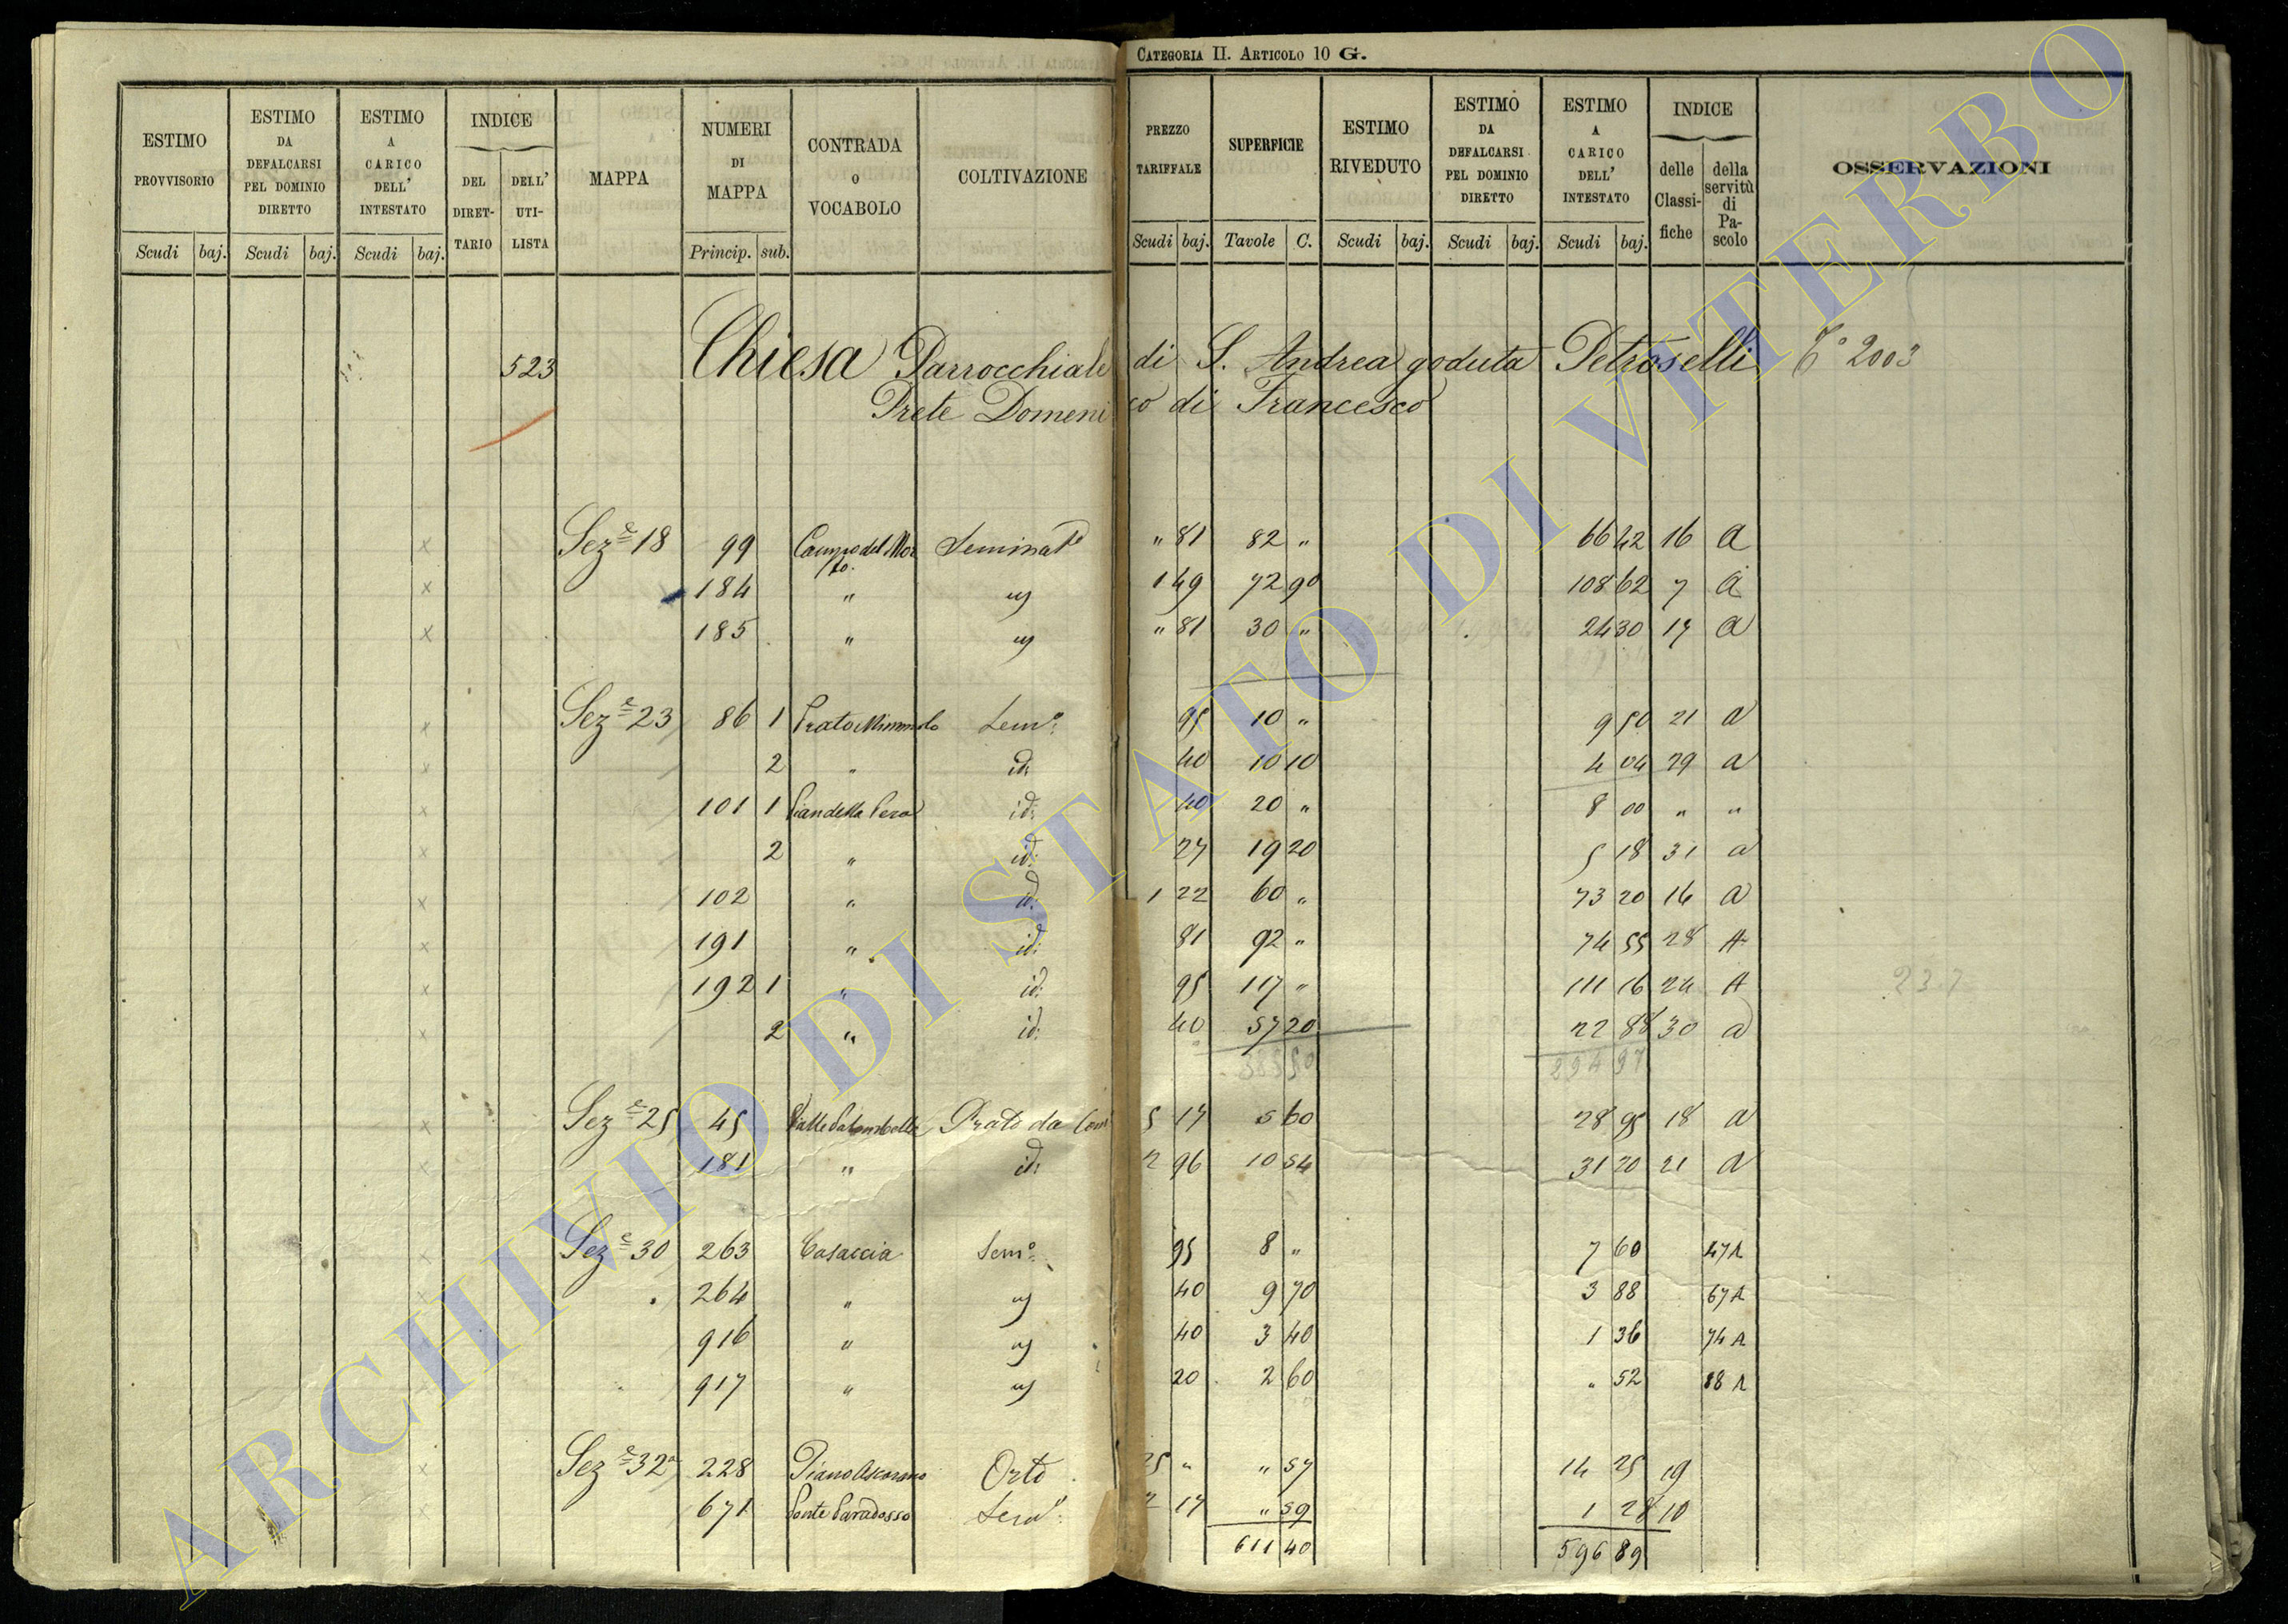 CATEGORIA II. ARTICOLO 10 G.
ESTIMO PROVVISORIO
ESTIMO DA DEFALCARSI PEL DOMINIO DIRETTO
ESTIMO A CARICO DELL' INTESTATO
INDICE
DEL DIRETTARIO
DELL' UTILISTA
MAPPA
NUMERI DI MAPPA
CONTRADA O VOCABOLO
COLTIVAZIONE
PREZZO TARIFFALE
SUPERFICIE
ESTIMO RIVEDUTO
ESTIMO DA DEFALCARSI PEL DOMINIO DIRETTO
ESTIMO A CARICO DELL' INTESTATO
INDICE
delle Classifiche
della servitù di Pascolo
OSSERVAZIONI
Scudi baj. Scudi baj. Scudi baj. Princip. sub. Scudi baj. Tavole C. Scudi baj. Scudi baj. Scudi baj.
523 Chiesa Parrocchiale di S. Andrea goduta Petroselli T° 2003
Prete Domenico di Francesco
Sez.e 18 99 Campo del Morto Seminat° " 81 82 " 66 42 16 A
184 " " 1 49 72 90 108 62 7 A
185 " " " 81 30 " 24 30 17 A
Sez.e 23 86 1 Prato Mimmolo Sem°: 95 10 " 9 50 21 A
2 " id: 40 10 10 4 04 29 a
101 1 Pian della Pera id: 40 20 " 8 00 " "
2 " id: 27 19 20 5 18 31 a
102 " id: 1 22 60 " 73 20 16 A
191 " id: 81 92 " 74 55 28 A
192 1 " id: 95 117 " 111 16 24 A
2 " id: 40 57 20 22 88 30 a
294 97
Sez.e 25 45 Valle Palombella Prato da 5 17 5 60 28 95 18 a
181 " id: 2 96 10 54 31 20 21 A
Sez.e 30 263 Casaccia Sem°: 95 8 " 7 60 47 A
264 " " 40 9 70 3 88 67 A
916 " " 40 3 40 1 36 74 A
917 " " 20 2 60 " 52 88 A
Sez.e 32a 228 Piano Ascarano Orto 25 " " 57 14 25 19
671 Ponte Paradosso Sem°: 2 17 " 59 1 28 10
611 40 596 89
ARCHIVIO DI STATO DI VITERBO